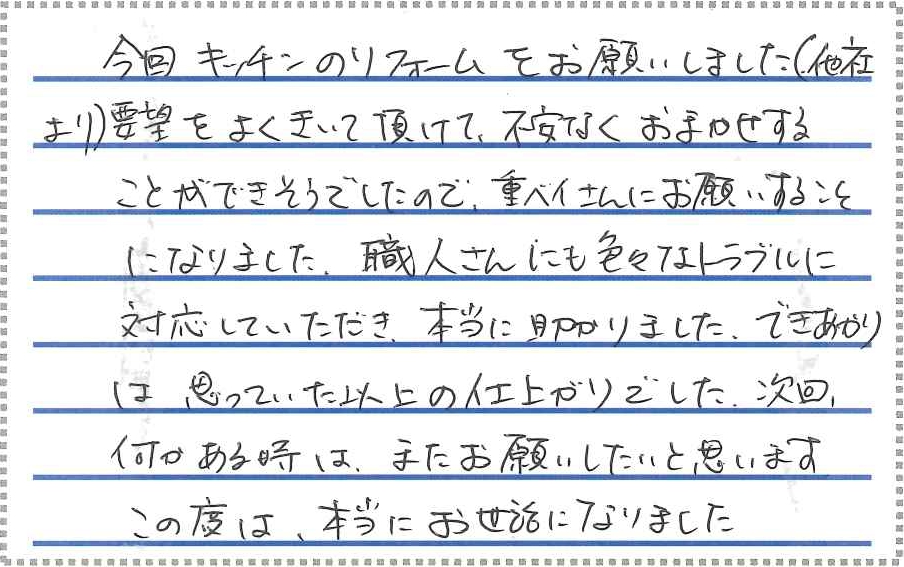 今回キッチンのリフォームをお願いしました(他社
より)要望をよくきいて頂けて、不安なくおまかせする
ことができそうでしたので、重ベイさんにお願いすること
になりました、職人さんにも色々なトラブルに
対応していただき、本当に助かりました、できあがり
は思っていた以上の仕上がりでした、次回、
何かある時は、またお願いしたいと思います
この度は、本当にお世話になりました